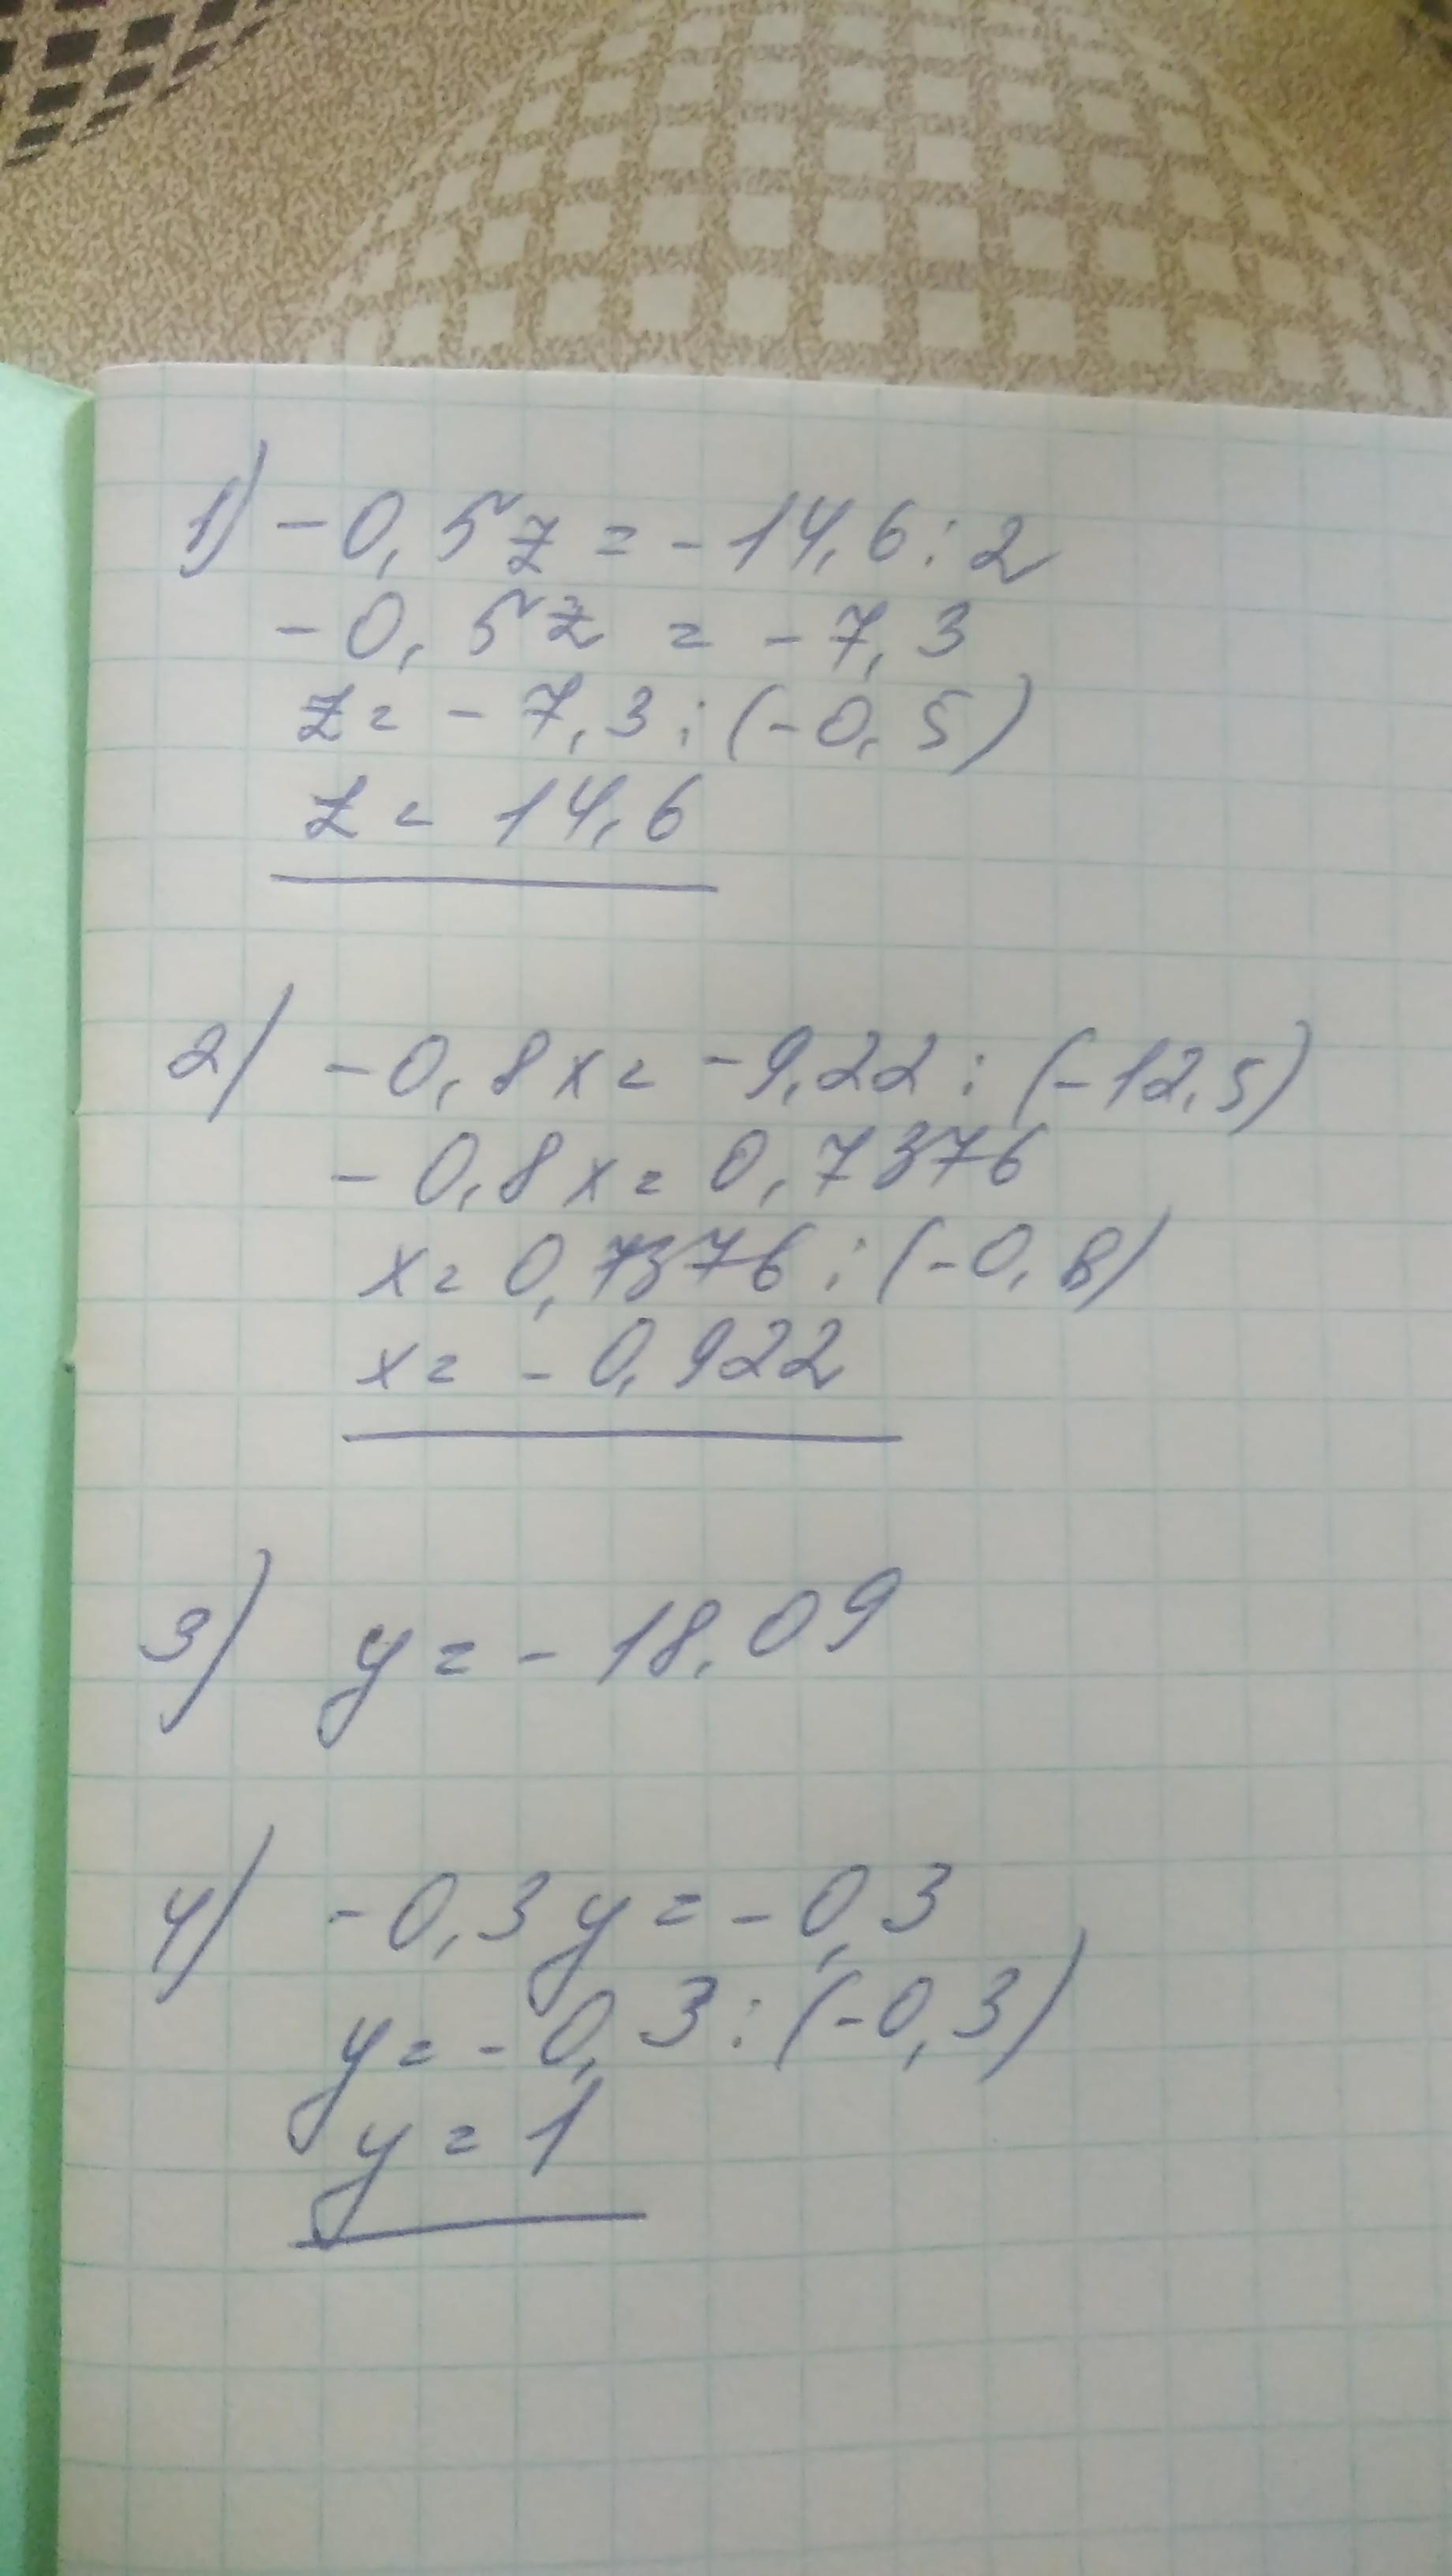 1) -0,5z = -14,6 : 2
-0,5z = -7,3
z = -7,3 : (-0,5)
z = 14,6
2) -0,8x = -9,22 : (-12,5)
-0,8x = 0,7376
x = 0,7376 : (-0,8)
x = -0,922
3) y = -18,09
4) -0,3y = -0,3
y = -0,3 : (-0,3)
y = 1